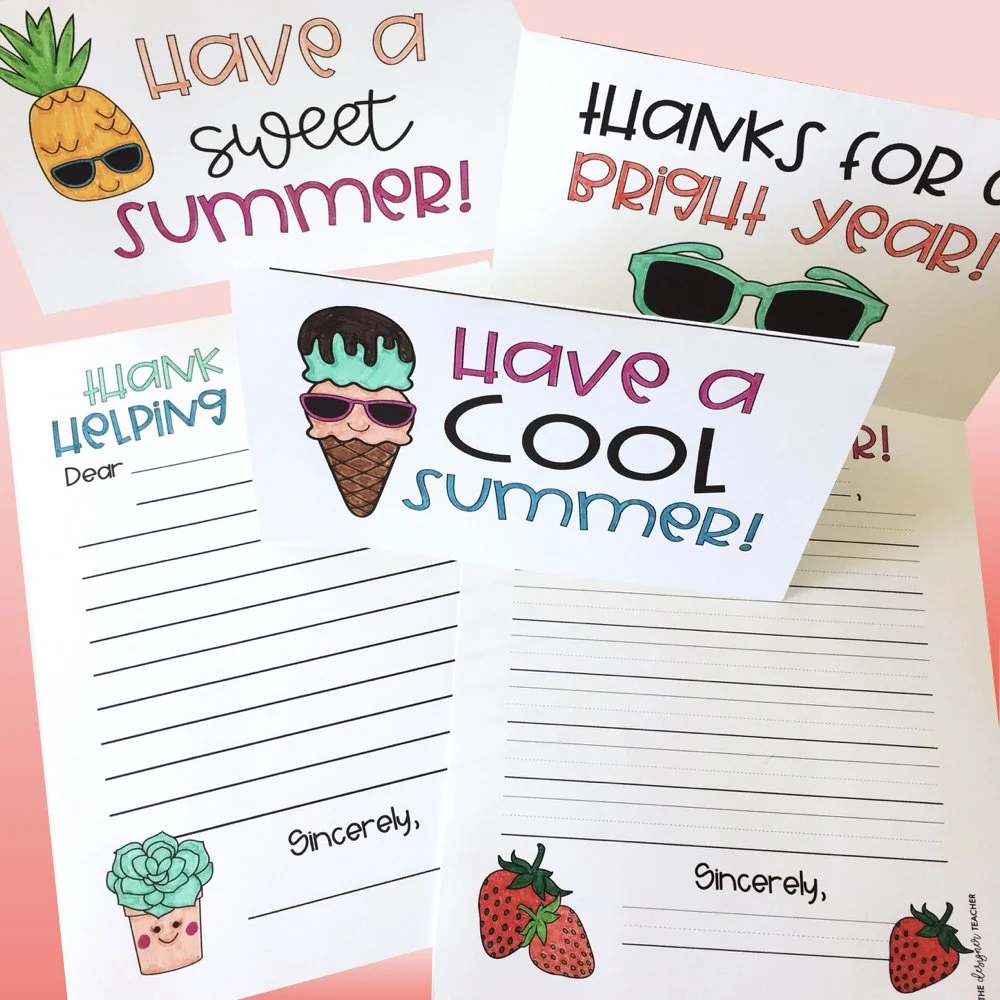 Have a
sweet
summer!
THANKS FOR a
BRIGHT YEAR!
Have a
COOL
summer!
THANK
HELPING
Dear
R!
,
Sincerely,
Sincerely,
THE designer TEACHER